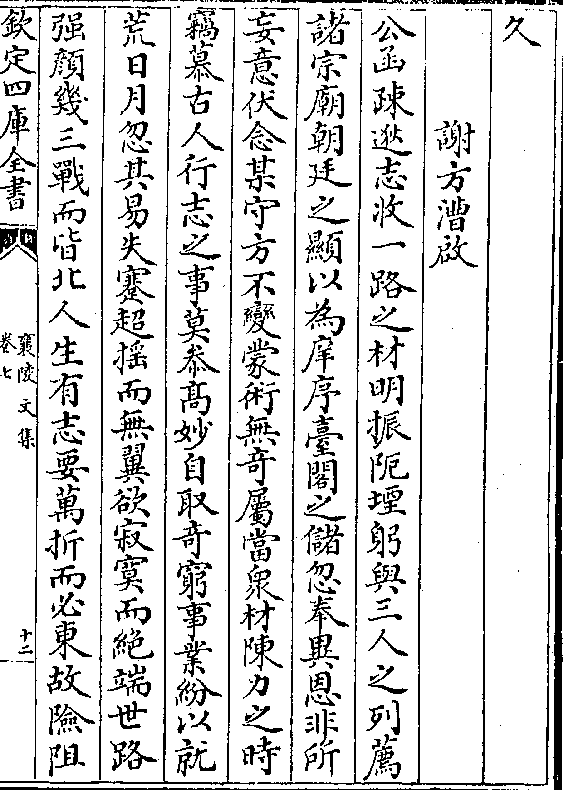 久
謝方漕啟
公函疎逖志收一路之材明振阨堙躬與三人之列薦
諸宗廟朝廷之顯以為庠序臺閣之儲忽奉異恩非所
妄意伏念某守方不變蒙術無奇屬當衆材陳力之時
竊慕古人行志之事莫叅髙妙自取竒窮事業紛以就
荒日月忽其易失蹇超揺而無翼欲寂寞而絶端世路
强顔幾三戰而皆北人生有志要萬折而必東故險阻
欽定四庫全書
襄陵文集
卷七
十二